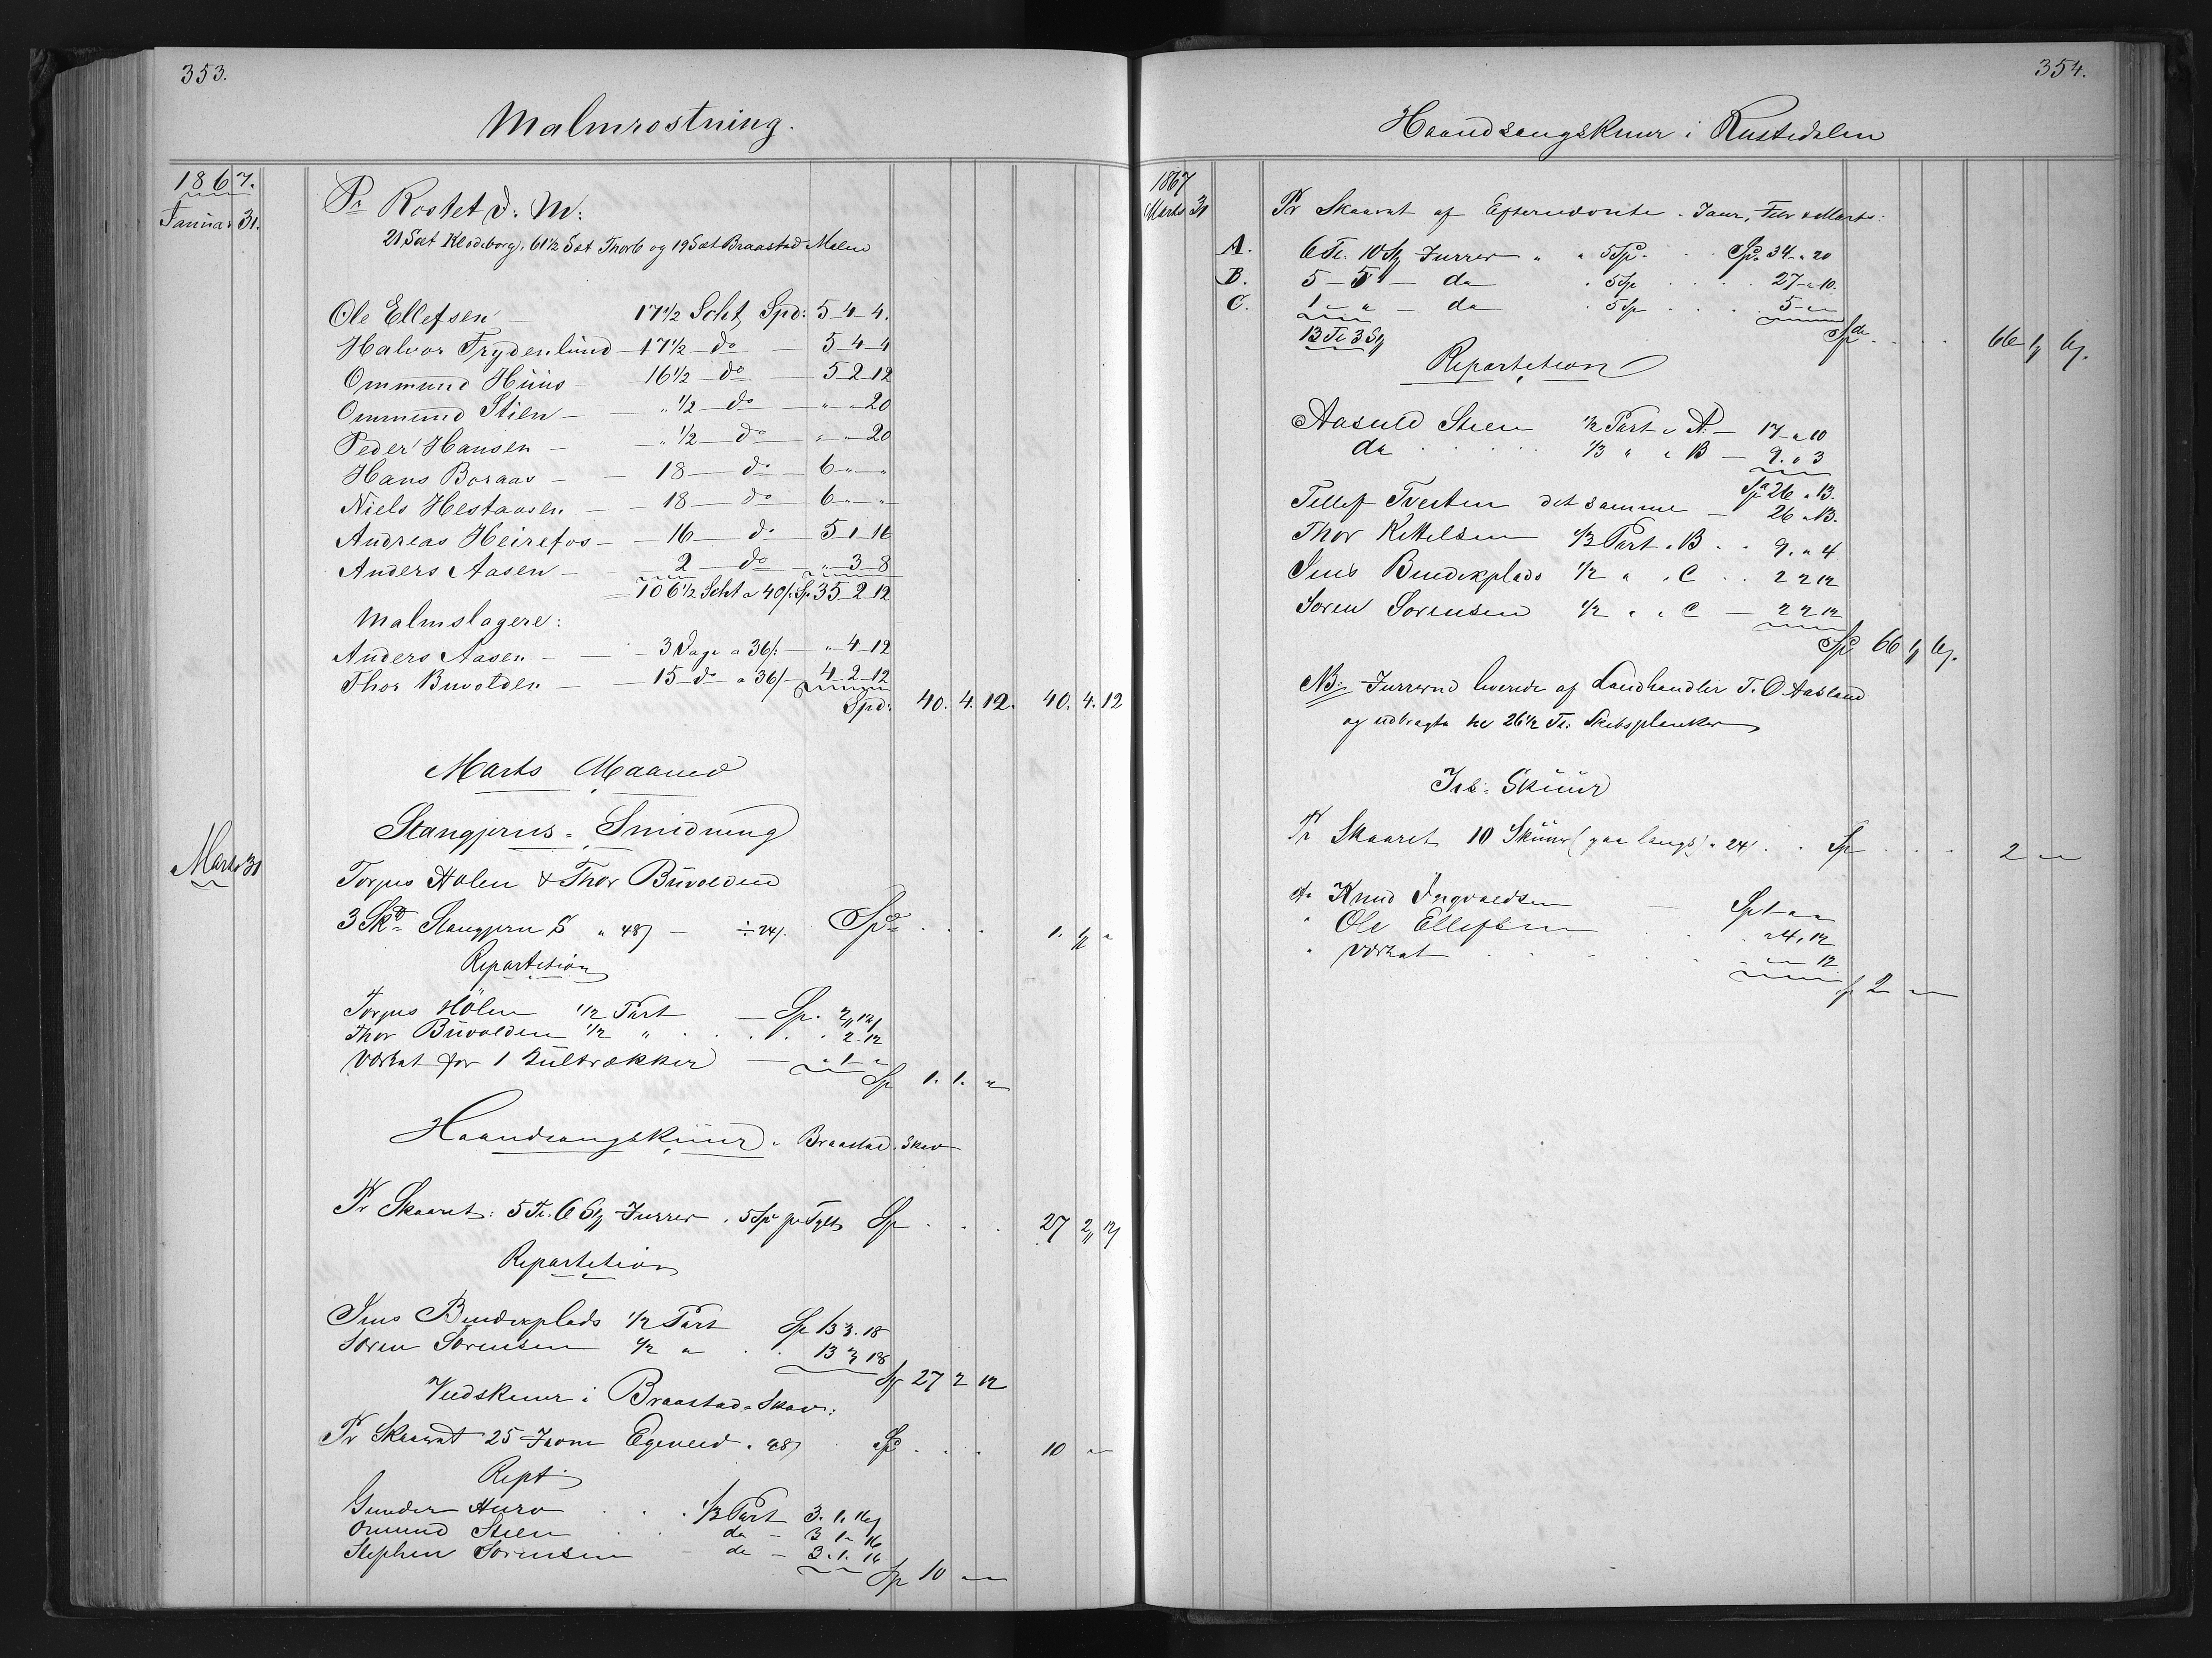 353.
Malmrostning.
1867.
Januar 31.
Pr Rostet d: M:
21 Sœt Klodeborg, 61 1/2 Sœt Thorb og 19 Sœt Braastad Malm
Ole Ellefsen — 17 1/2 Scht Spd: 5-4-4.
Halvor Frydenlund — 17 1/2 — do — 5-4-4
Ommund Huus — 16 1/2 — do — 5-2-12
Ommund Stien — " 1/2 — do — " - " 20
Peder Hansen — " 1/2 — do — " - " 20
Hans Boraas — 18 — do — 6 - " - "
Niels Hestaasen — 18 — do — 6 - " - "
Andreas Heirefos — 16 — do — 5-1-16
Anders Aasen — 2 — do — " -3-8
106 1/2 Scht a 40/: Sp 35-2-12
Malmslagere:
Anders Aasen — 3 Dage a 36/: — " -4-12
Thor Buvolden — 15 do a 36/ — 4-2-12
Spd: 40. 4. 12. 40. 4. 12
Marts Maaned
Stangjerns-Smidning
Marts 31
Torjus Holen & Thor Buvolden
3 Skd Stangjern S " 48/ — ÷ 24/. Spd . . . 1. 1 "
Repartition
Torjus Holen 1/2 Part — Sp. " 2 12/
Thor Buvolden 1/2 " . . . " 2. 12
Værket for 1 Kultrækker — " 1 "
Sp 1. 1. "
Haandsaugskuur i Braastad Skov
Pr Skaaret: 5 Tl. 6 St Furrer " 5 Sp pr Tylt Sp . . . 27 2 12/
Repartition
Jens Bendixplads 1/2 Part Sp 13 3. 18
Soren Sorensen 1/2 " . . 13 3 18
Sp 27 2 12
Vedskuur i Braastad-Skov:
Pr Skaaret 25 Favne Egeved " 48/ Spd . . . 10 "
Rept
Gunder Auro . . 1/3 Part 3. 1. 16/
Omund Stien . . do — 3 1 16
Stephen Sorensen — do — 3. 1. 16
Sp 10 " "
354.
Haandsaugskuur i Rustedalen
1867
Marts 31
Pr Skaaret af Efternevnte i Janr, Febr & Marts:
A. 6 Tl. 10 St Furrer " " 5 Sp. . . Spd. 34 - " 20
B. 5 - 5 " — do " 5 Sp . . . 27 - " 10.
C. 1 - " — do " 5 Sp . . . 5 - " "
13 Tl 3 St Spd . . . 66 1 6/.
Repartition
Aasuld Steen 1/2 Part i A — 17 - " 10
do . . . . 1/3 " i B — 9. " 3
Spd 26 " 13.
Tellef Tveiten det samme — 26 " 13.
Thor Kittelsen 1/3 Part i B . . 9. " 4
Jens Bendixplads 1/2 " i C . . 2 2 12
Soren Sorensen 1/2 " i C — 2 2 12
Spd 66 1 6/.
NB: Furrerne leverede af Landhandler T. O. Aasland
og udbragte til 26 1/2 Tl. Skibsplanker
Ved Skuur
Pr Skaaret 10 Skuur (paa langs) " 24/ . . Sp . . . 2 " "
af Knud Ingvaldsen — Sp 1 " "
" Ole Ellefsen . . " 4. 12
" Værket . . . . " " 12
Sp 2 " "